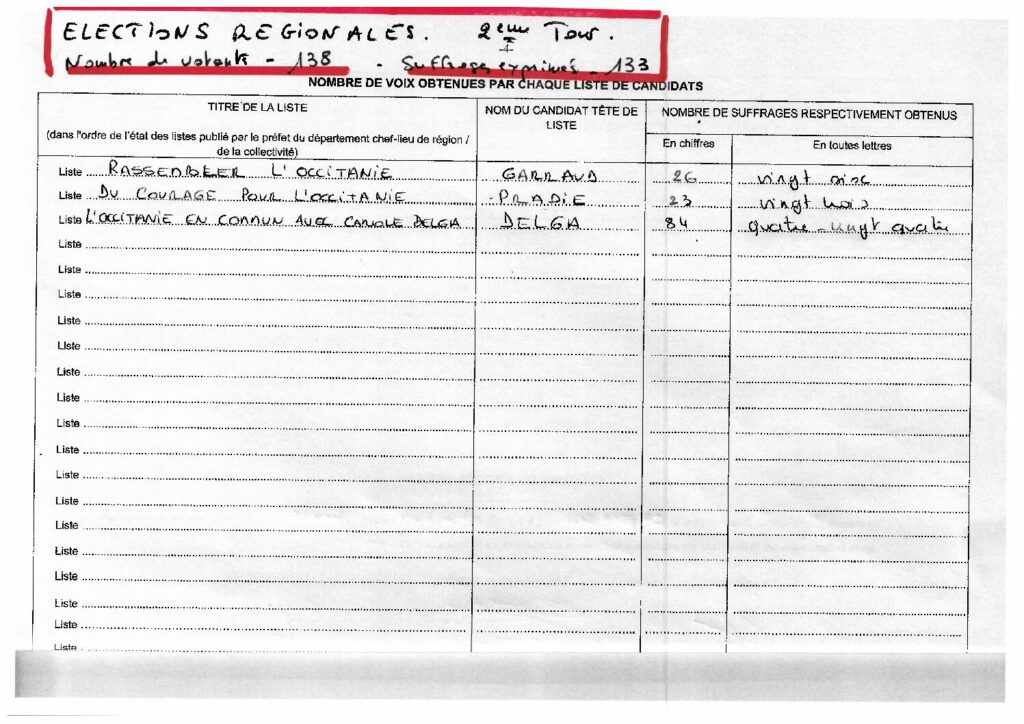 ELECTIONS REGIONALES. 2ème Tour.
Nombre de votants - 138 - Suffrages exprimés - 133
NOMBRE DE VOIX OBTENUES PAR CHAQUE LISTE DE CANDIDATS
TITRE DE LA LISTE
(dans l'ordre de l'état des listes publié par le préfet du département chef-lieu de région /
de la collectivité)
NOM DU CANDIDAT TÊTE DE
LISTE
NOMBRE DE SUFFRAGES RESPECTIVEMENT OBTENUS
En chiffres En toutes lettres
Liste RASSEMBLER L'OCCITANIE GARRAUD 26 vingt six
Liste DU COURAGE POUR L'OCCITANIE PRADIE 23 vingt trois
Liste L'OCCITANIE EN COMMUN AVEC CAROLE DELGA DELGA 84 quatre-vingt quatre
Liste
Liste
Liste
Liste
Liste
Liste
Liste
Liste
Liste
Liste
Liste
Liste
Liste
Liste
Liste
Liste
Liste